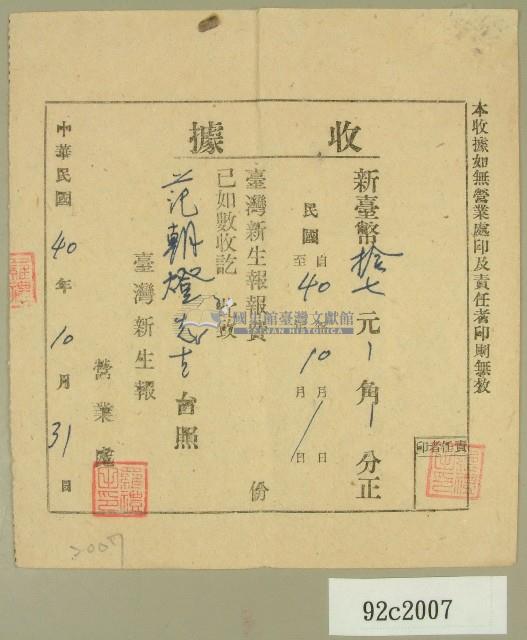 本收據如無營業處印及責任者印則無效
收據
新臺幣拾七元 角 分正
自
民國40年10月1日
至 年 月 日
臺灣新生報報費 份
已如數收訖此致
范朝燈志士台照
臺灣新生報
營業處
中華民國40年10月31日
責任者印
國史館臺灣文獻館
TAIWAN HISTORICA
2007
92c2007